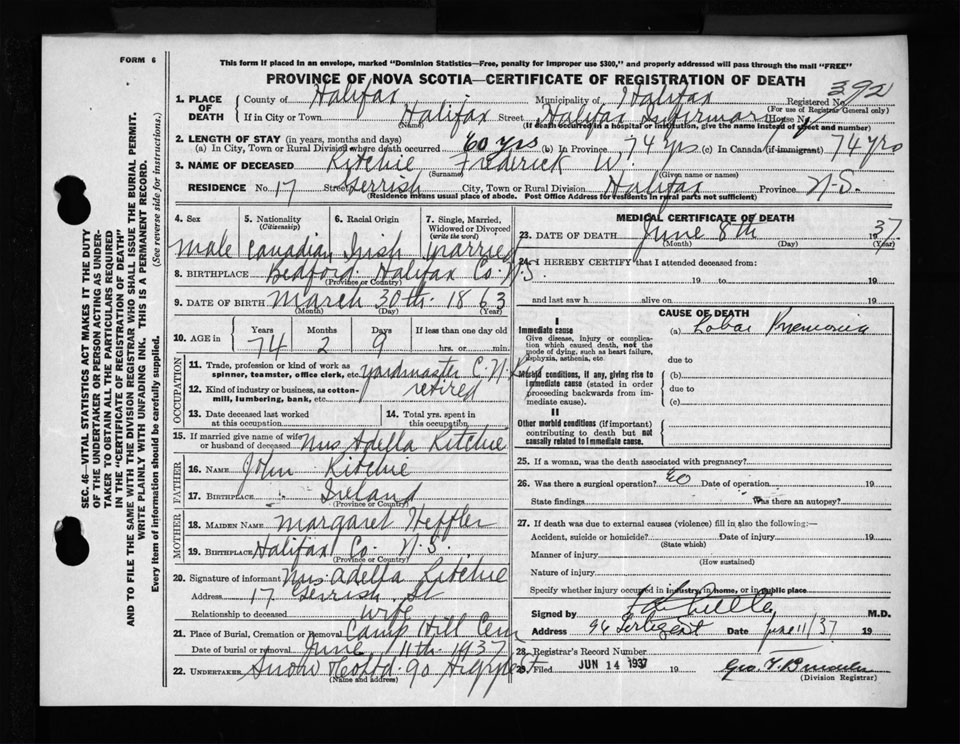 FORM 6
This form if placed in an envelope, marked "Dominion Statistics—Free, penalty for improper use $300," and properly addressed will pass through the mail "FREE"
PROVINCE OF NOVA SCOTIA—CERTIFICATE OF REGISTRATION OF DEATH
392
1. PLACE OF DEATH
County of Halifax Municipality of Halifax Registered No.
(For use of Registrar General only)
If in City or Town Halifax Street Halifax Infirmary House No.
(Name) (If death occurred in a hospital or institution, give the name instead of street and number)
2. LENGTH OF STAY (in years, months and days)
(a) In City, Town or Rural Division where death occurred 60 yrs (b) In Province 74 yrs (c) In Canada (if immigrant) 74 yrs
3. NAME OF DECEASED Ritchie Frederick W.
(Surname) (Given name or names)
RESIDENCE No. 17 Street Gerrish City, Town or Rural Division Halifax Province N.S.
(Residence means usual place of abode. Post Office Address for residents in rural parts not sufficient)
4. Sex 5. Nationality (Citizenship) 6. Racial Origin 7. Single, Married, Widowed or Divorced (write the word)
Male Canadian Irish Married
8. BIRTHPLACE Bedford Halifax Co. N.S.
(Province or Country)
9. DATE OF BIRTH March 30th 1863
(Month) (Day) (Year)
10. AGE in Years Months Days If less than one day old
74 2 9 hrs. or min.
OCCUPATION
11. Trade, profession or kind of work as spinner, teamster, office clerk, etc. Yardmaster C.N.R.
12. Kind of industry or business, as cotton-mill, lumbering, bank, etc. retired
13. Date deceased last worked at this occupation
14. Total yrs. spent in this occupation
15. If married give name of wife or husband of deceased Mrs Adella Ritchie
FATHER
16. NAME John Ritchie
17. BIRTHPLACE Ireland
(Province or Country)
MOTHER
18. MAIDEN NAME Margaret Heffler
19. BIRTHPLACE Halifax Co. N.S.
(Province or Country)
20. Signature of informant Mrs Adella Ritchie
Address 17 Gerrish St
Relationship to deceased wife
21. Place of Burial, Cremation or Removal Camp Hill Cem
Date of burial or removal June 11th 1937
22. UNDERTAKER Snow & Co Ltd 90 Argyle St
(Name and address)
MEDICAL CERTIFICATE OF DEATH
23. DATE OF DEATH June 8th 1937
(Month) (Day) (Year)
24. I HEREBY CERTIFY that I attended deceased from:
19 to 19
and last saw h alive on 19
CAUSE OF DEATH
I
Immediate cause (a) Lobar Pneumonia
Give disease, injury or complication which caused death, not the mode of dying, such as heart failure, asphyxia, asthenia, etc.
due to
Morbid conditions, if any, giving rise to immediate cause (stated in order proceeding backwards from immediate cause).
(b)
due to
(c)
II
Other morbid conditions (if important) contributing to death but not causally related to immediate cause.
25. If a woman, was the death associated with pregnancy?
26. Was there a surgical operation? Date of operation 19
State findings Was there an autopsy?
27. If death was due to external causes (violence) fill in also the following:—
Accident, suicide or homicide? Date of injury 19
(State which)
Manner of injury
(How sustained)
Nature of injury
Specify whether injury occurred in industry, in home, or in public place
Signed by M.D.
Address 96 Date June 11/37 19
28. Registrar's Record Number
29. Filed JUN 14 1937 19 Geo.
(Division Registrar)
SEC. 46—VITAL STATISTICS ACT MAKES IT THE DUTY
OF THE UNDERTAKER OR PERSON ACTING AS UNDER-
TAKER TO OBTAIN ALL THE PARTICULARS REQUIRED
IN THE "CERTIFICATE OF REGISTRATION OF DEATH"
AND TO FILE THE SAME WITH THE DIVISION REGISTRAR WHO SHALL ISSUE THE BURIAL PERMIT.
WRITE PLAINLY WITH UNFADING INK. THIS IS A PERMANENT RECORD.
Every item of information should be carefully supplied. (See reverse side for instructions.)